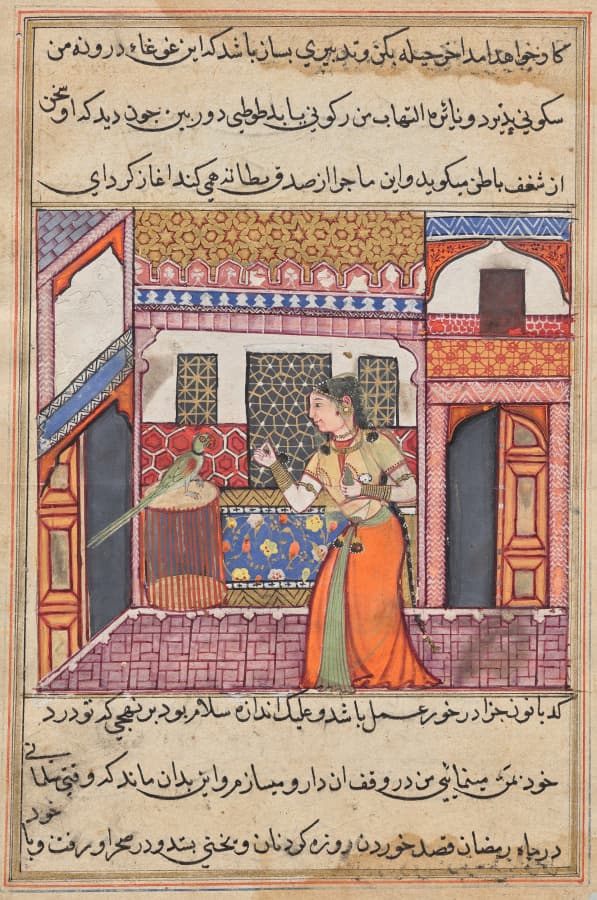 کار خواهد امد اخر حیله بکن و تدبیری بساز باشد که این غوغاء درونه من
سکونی پذیرد و نائره التهاب من رکونی یابد طوطی دوربین چون دید که او سخن
از شغف باطن میکوید و این ماجرا از صدق بطانه همی کند اغاز کرد ای
کدبانو جزا در خور عمل باشد و علیک اندازه سلام بود بر نهجی که تو درد
خود بمن مینمائی من در وقف ان دارو میسازم و این بدان ماند که وقتی
در ماه رمضان قصد خوردن روزه کرد نان و پختی بستد و در صحرا رفت و با خود